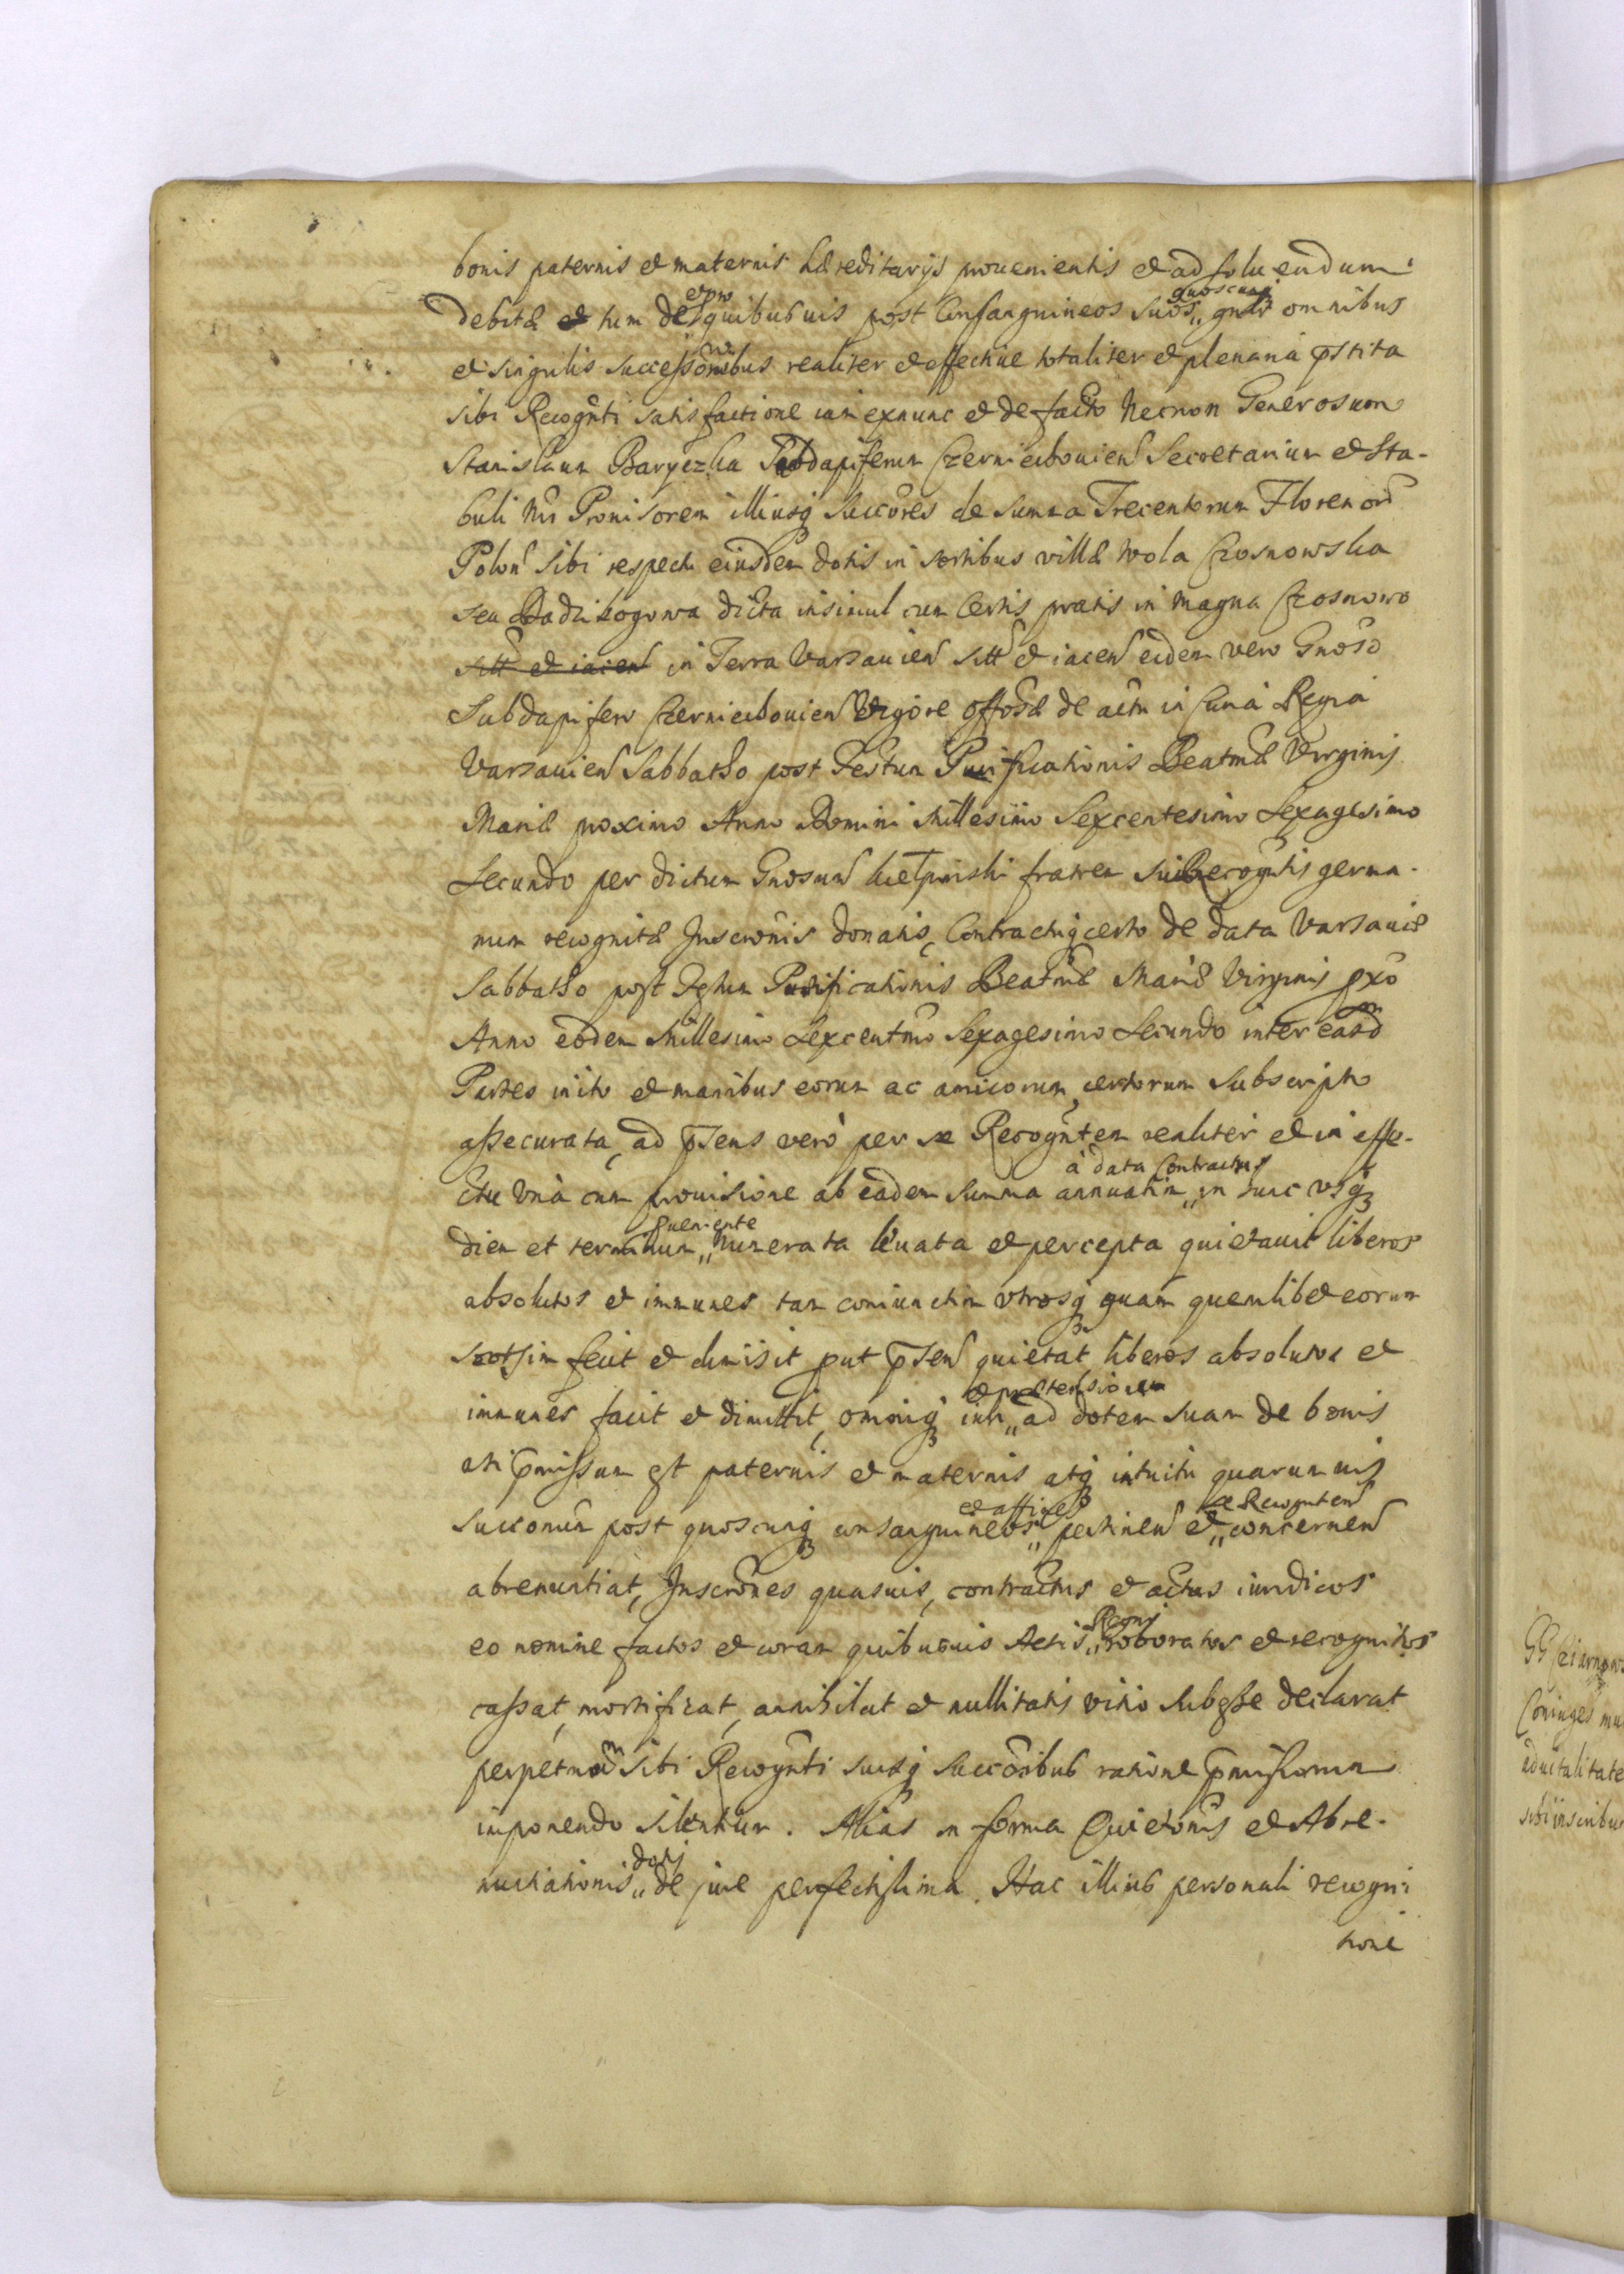 bonis paternis et maternis hæreditarijs prouenientis et ad soluendum
debitæ et tum de et pro quibusuis post Consanguineos suos quoscunq gnalr omnibus
et singulis successionibus realiter et effectiue totaliter et plenaria pstita
sibi Recognti satisfactione iam exnunc et de facto Necnon Generosum
Stanislaum Baryczka Subdapiferum Czerniechouien Secretarium et Sta-
buli Nri Prouisorem illiusq Succores de Summa Trecentorum Florenor
Polon sibi respectu eiusdem dotis in sortibus villæ Wola Czosnowska
seu dicta insimul cum Certis pratis in Magna Czosnowo
sitt et iacen in Terra Varsauien sitt et iacen eidem vero Gnoso
Subdapifero Czerniechouien Vigore offosæ de actu in Curia Regia
Varsauien Sabbatho post Festum Purificationis Beatmæ Virginis
Mariæ proximo Anno Domini Millesimo Sexcentesimo Sexagesimo
Secundo per dictum Gnosum fratrem sui Recogntis germa-
num recognitæ Inscronis donatis, Contractuq certo de data Varsauiæ
Sabbatho post Festum Purificationis Beatmæ Mariæ Virginis pxo
Anno eodem Millesimo Sexcentmo Sexagesimo Secundo inter easd
Partes inito et manibus eorum ac amicorum certorum subscripto
assecurata, ad psens verò per se Recognten realiter et in effe-
ctu Vnà cum prouisione ab eadem Summa annuatim à data Contractus in hunc vsq
diem et terminum ueniente numerata leuata et percepta quietauit liberos
absolutos et immunes tam coniunctim vtrosq quam quemlibet eorum
seorsim fecit et dimisit put psen quietat liberos absolutos et
immunes facit et dimittit, omniq iuri et prætensioni ad dotem suam de bonis
uti pmissum est paternis et maternis atq intuitu quarumuis
succonum post quoscunq consanguineos et affines pertinen et se Recognten concernen
abrenuntiat, Inscrones quasuis, contractus et actus iuridicos
eo nomine factos et coram quibusuis Actis Rcons roboratos et recognitos
cassat, mortificat, annihilat et nullitatis vitio subesse declarat
perpetuum sibi Recognti suisq succoribus ratione pmissorum
imponendo silentium. Alias in forma Quietonis et Abre-
nuntiationis dotis de jure perfectissima. Hac illius personali recogni-
tione